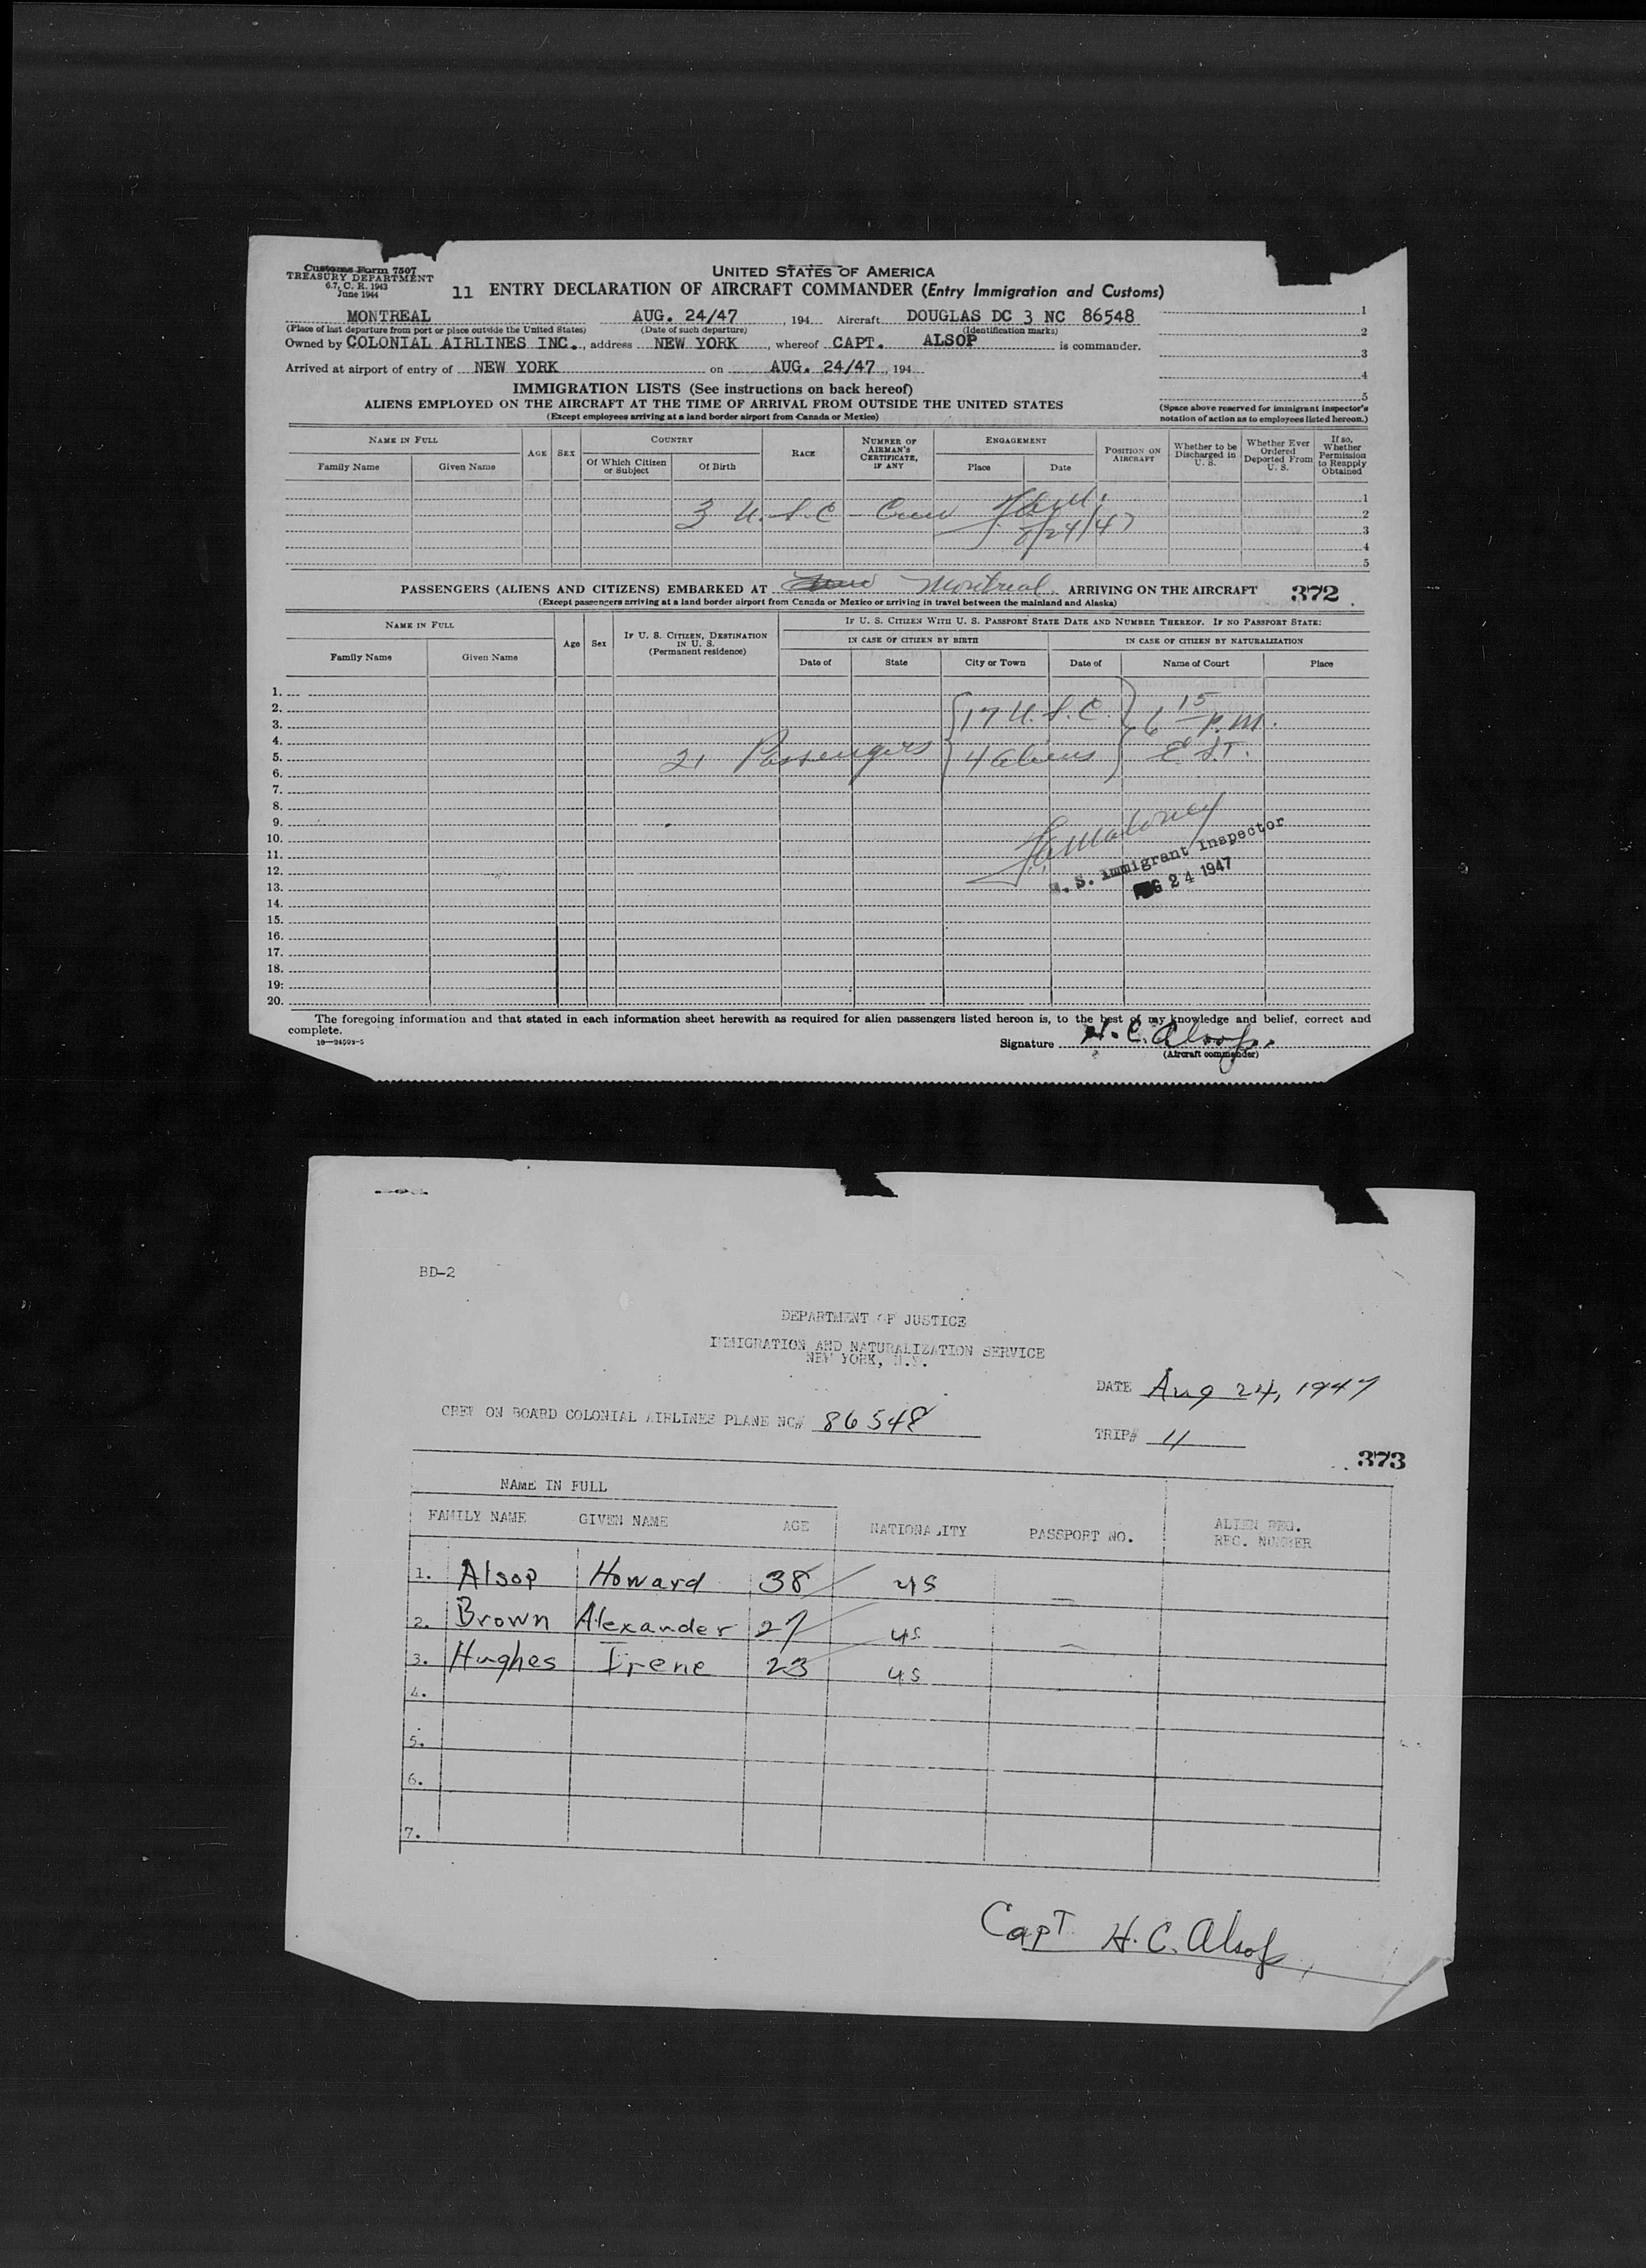 Customs Form 7507
TREASURY DEPARTMENT
6.7, C. R. 1943
June 1944
UNITED STATES OF AMERICA
11 ENTRY DECLARATION OF AIRCRAFT COMMANDER (Entry Immigration and Customs)
MONTREAL AUG. 24/47, 194 Aircraft DOUGLAS DC 3 NC 86548
(Place of last departure from port or place outside the United States) (Date of such departure) (Identification marks)
Owned by COLONIAL AIRLINES INC., address NEW YORK, whereof CAPT. ALSOP is commander.
Arrived at airport of entry of NEW YORK on AUG. 24/47, 194
1
2
3
4
5
(Space above reserved for immigrant inspector's
notation of action as to employees listed hereon.)
IMMIGRATION LISTS (See instructions on back hereof)
ALIENS EMPLOYED ON THE AIRCRAFT AT THE TIME OF ARRIVAL FROM OUTSIDE THE UNITED STATES
(Except employees arriving at a land border airport from Canada or Mexico)
NAME IN FULL
Family Name
Given Name
AGE
SEX
COUNTRY
Of Which Citizen
or Subject
Of Birth
RACE
NUMBER OF
AIRMAN'S
CERTIFICATE,
IF ANY
ENGAGEMENT
Place
Date
POSITION ON
AIRCRAFT
Whether to be
Discharged in
U. S.
Whether Ever
Ordered
Deported From
U. S.
If so,
Whether
Permission
to Reapply
Obtained
1
2
3
4
5
3 U. S. C - Crew
8/24/47
PASSENGERS (ALIENS AND CITIZENS) EMBARKED AT Montreal ARRIVING ON THE AIRCRAFT 372
(Except passengers arriving at a land border airport from Canada or Mexico or arriving in travel between the mainland and Alaska)
NAME IN FULL
Family Name
Given Name
Age
Sex
IF U. S. CITIZEN, DESTINATION
IN U. S.
(Permanent residence)
IF U. S. CITIZEN WITH U. S. PASSPORT STATE DATE AND NUMBER THEREOF. IF NO PASSPORT STATE:
IN CASE OF CITIZEN BY BIRTH
Date of
State
City or Town
IN CASE OF CITIZEN BY NATURALIZATION
Date of
Name of Court
Place
1.
2.
3.
4.
5.
6.
7.
8.
9.
10.
11.
12.
13.
14.
15.
16.
17.
18.
19.
20.
17 U. S. C. 6 15 P.M.
21 Passengers 4 aliens E S.T.
Maloney
U. S. Immigrant Inspector
AUG 24 1947
The foregoing information and that stated in each information sheet herewith as required for alien passengers listed hereon is, to the best of my knowledge and belief, correct and
complete.
Signature H. C. Alsop.
(Aircraft commander)
BD-2
DEPARTMENT OF JUSTICE
IMMIGRATION AND NATURALIZATION SERVICE
NEW YORK, N.Y.
DATE Aug 24, 1947
CREW ON BOARD COLONIAL AIRLINES PLANE NC# 86548
TRIP# 11
373
NAME IN FULL
FAMILY NAME GIVEN NAME AGE NATIONALITY PASSPORT NO. ALIEN REG.
REC. NUMBER
1. Alsop Howard 38 US —
2. Brown Alexander 27 US —
3. Hughes Irene 23 US
4.
5.
6.
7.
Capt H. C. Alsop,